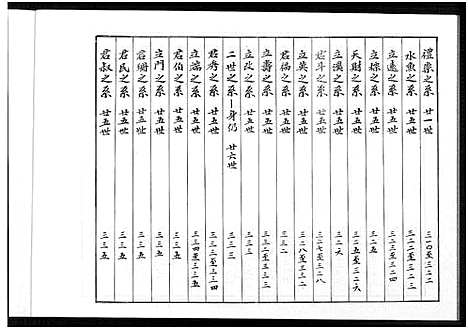 禮崇之系 廿一世 三一〇至三二二
水魚之系 廿五世 三二二至三二三
立遠之系 廿五世 三二三至三二四
立椂之系 廿五世 三二五
天財之系 廿五世 三二五至三二六
立漢之系 廿五世 三二六
君斗之系 廿五世 三二七至三二八
立英之系 廿五世 三二八至三三二
君倫之系 廿五世 三三二
立壽之系 廿五世 三三二至三三三
立政之系 廿五世 三三三
二世之系—身仍 廿六世 三三三
君秀之系 廿五世 三三三至三三四
立瀛之系 廿五世 三三四至三三五
君伯之系 廿五世 三三五
立門之系 廿五世 三三五
君珊之系 廿五世 三三五
君民之系 廿五世 三三五
君叔之系 廿五世 三三五